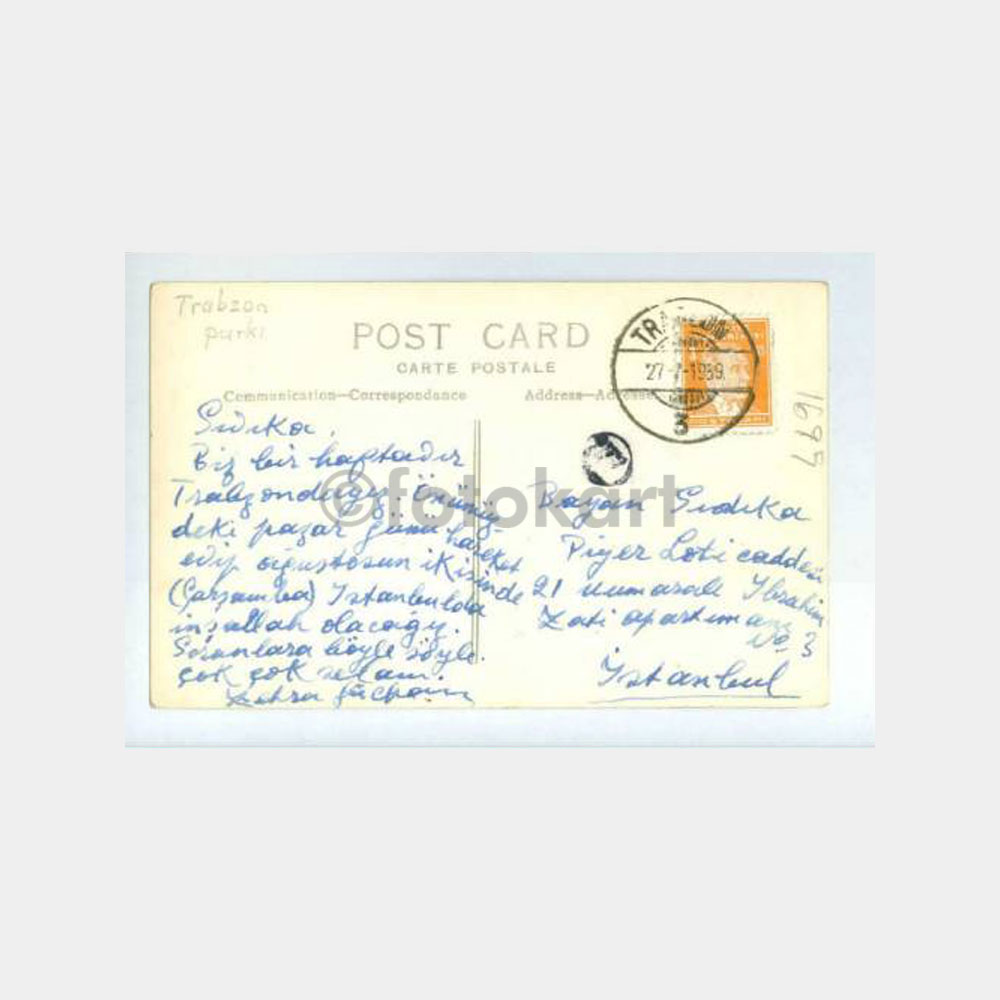 Trabzon
parkı
POST CARD
CARTE POSTALE
Communication—Correspondence
Address—Adresse
27-7-1939
3
1695
Sıdıka,
Biz bir haftadır
Trabzondayız. Önümüz
deki pazar günü hareket
edip ağustosun ikisinde
(Çarşamba) İstanbulda
inşallah olacağız.
Soranlara böyle söyle.
Çok çok selam.
Zehra
Bayan Sıdıka
Piyer Loti caddesi
21 numarada İbrahim
Zati apartımanı
No 3
İstanbul
©fotokart